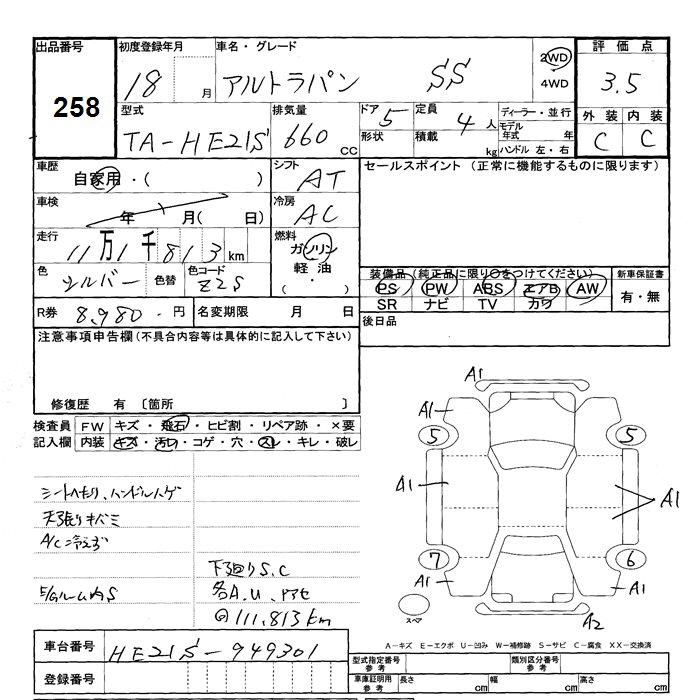 出品番号 初度登録年月 車名・グレード 2WD 評価点
258 18 月 アルトラパン SS 4WD 3.5
型式 排気量 ドア 5 定員 ディーラー・並行 外装 内装
TA-HE21S 660 cc 形状 積載 4 人 kg モデル年式 年 C C
ハンドル 左・右
車歴 シフト セールスポイント (正常に機能するものに限ります)
自家用・( ) AT
車検 冷房
年 月( 日) AC
走行 燃料
11万1千813 km ガソリン
色 色コード 軽油 装備品 (純正品に限り○をつけてください) 新車保証書
シルバー 色替 Z2S ・ PS PW ABS エアB AW 有・無
SR ナビ TV カワ
R券 8,980-円 名変期限 月 日 後日品
注意事項申告欄 (不具合内容等は具体的に記入して下さい)
修復歴 有 〔箇所 〕
検査員 FW キズ・飛石・ヒビ割・リペア跡・×要
記入欄 内装 キズ・汚れ・コゲ・穴・スレ・キレ・破レ
シートヘタリ、ハンドルハゲ
天張りキバミ
A/C冷えず
下廻りS.C
E/Gルーム内S 各A.U.アセ
111,813km
A1
A1
5 5
A1 A1
7 6
A1 A1
スペア A2
A-キズ E-エクボ U-凹み W-補修跡 S-サビ C-腐食 XX-交換済
車台番号 HE21S-949301 型式指定番号 参考 類別区分番号 参考
登録番号 車庫証明用 参考 長さ cm 幅 cm 高さ cm